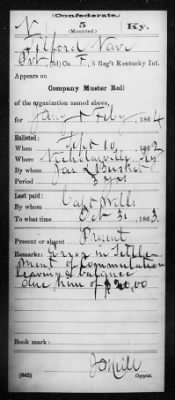 (Confederate.)
N 5 Ky.
(Mounted.)
Tilford Nave
Pvt, (3d) Co. F, 5 Reg't Kentucky Inf.
Appears on
Company Muster Roll
of the organization named above,
for Jany & Feby, 1864
Enlisted:
When Sept 10, 1862
Where Nicholasville, Ky
By whom Jas
Period 3 yrs
Last paid:
By whom Capt Mills
To what time Oct 31, 1863
Present or absent Present
Remarks: Error in settle-
ment of commutation
leaving a balance
due him of $20.00
Book mark:
(642) Copyist.